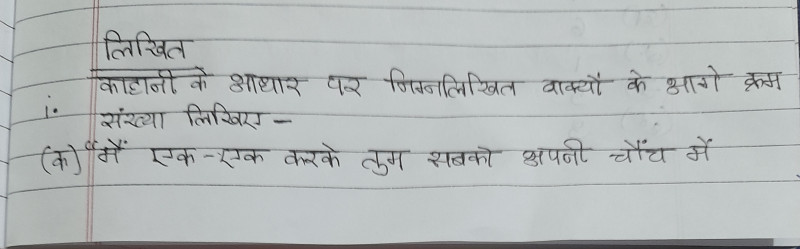 लिखित
कहानी के आधार पर निम्नलिखित वाक्यों के आगे क्रम
i. संख्या लिखिए -
(क) "मैं एक-एक करके तुम सबको अपनी चोंच में